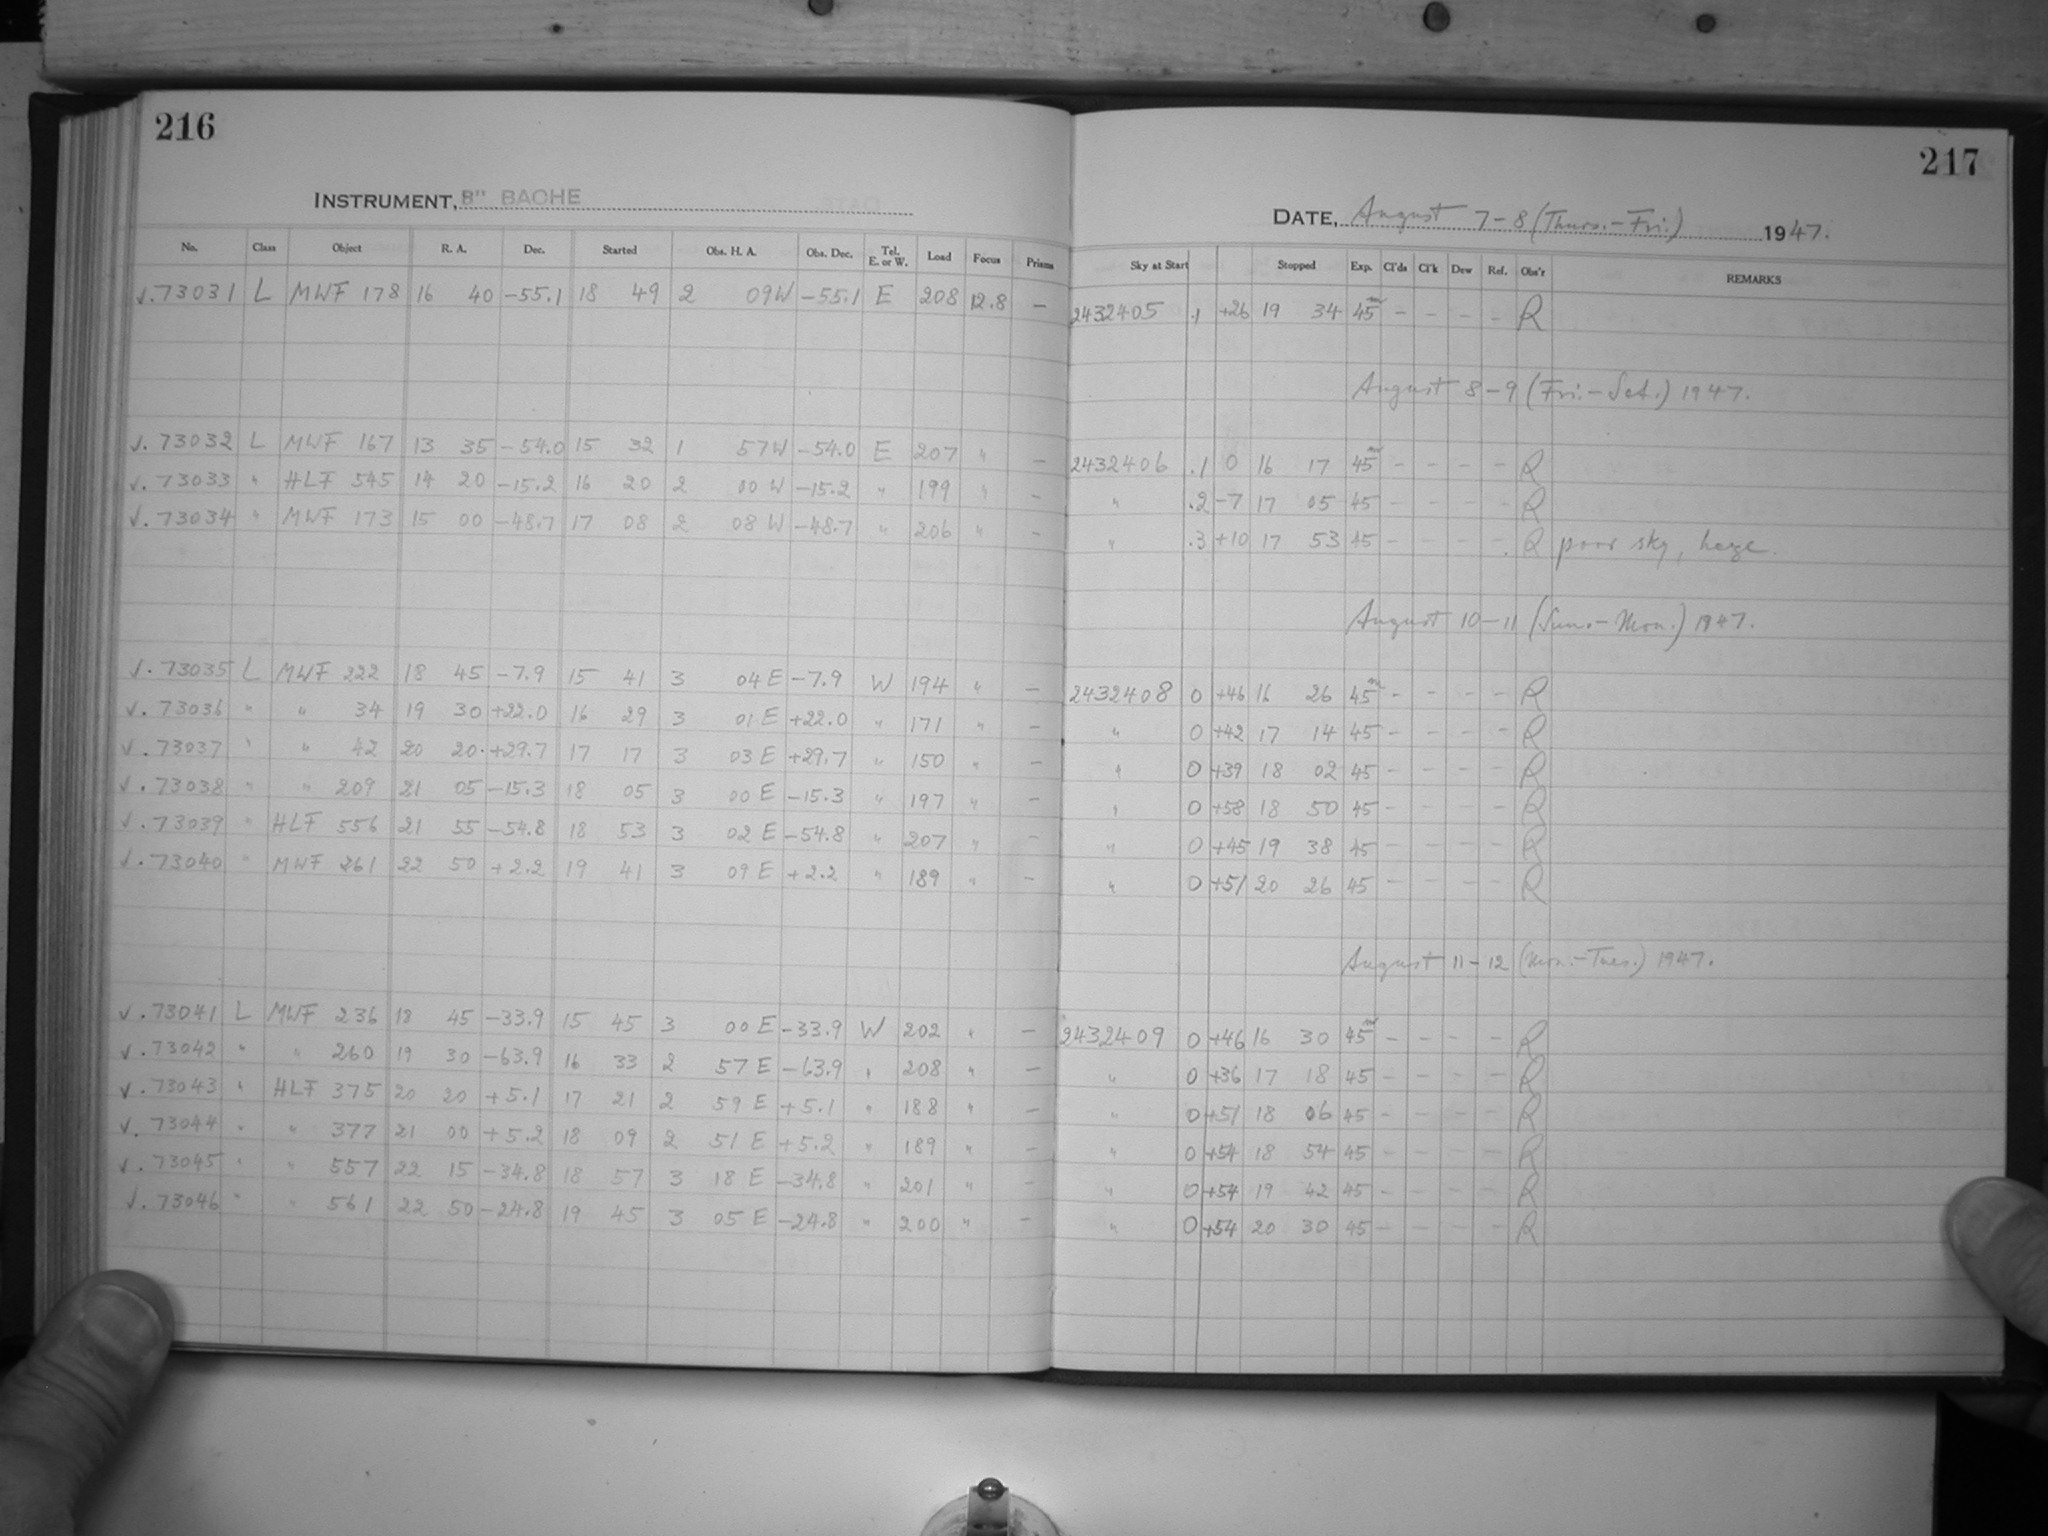 216
INSTRUMENT, 8" BACHE
No. Class Object R. A. Dec. Started Obs. H. A. Obs. Dec. Tel. E. or W. Load Focus Prisms
√.73031 L MWF 178 16 40 -55.1 18 49 2 09W -55.1 E 208 12.8 -
√.73032 L MWF 167 13 35 -54.0 15 32 1 57W -54.0 E 207 " -
√.73033 " HLF 545 14 20 -15.2 16 20 2 00 W -15.2 " 199 " -
√.73034 " MWF 173 15 00 -48.7 17 08 2 08 W -48.7 " 206 " -
√.73035 L MWF 222 18 45 -7.9 15 41 3 04 E -7.9 W 194 " -
√.73036 " " 34 19 30 +22.0 16 29 3 01 E +22.0 " 171 " -
√.73037 " " 42 20 20 +29.7 17 17 3 03 E +29.7 " 150 " -
√.73038 " " 209 21 05 -15.3 18 05 3 00 E -15.3 " 197 " -
√.73039 " HLF 556 21 55 -54.8 18 53 3 02 E -54.8 " 207 " -
√.73040 " MWF 261 22 50 +2.2 19 41 3 09 E +2.2 " 189 " -
√.73041 L MWF 236 18 45 -33.9 15 45 3 00 E -33.9 W 202 " -
√.73042 " " 260 19 30 -63.9 16 33 2 57 E -63.9 " 208 " -
√.73043 " HLF 375 20 20 +5.1 17 21 2 59 E +5.1 " 188 " -
√.73044 " " 377 21 00 +5.2 18 09 2 51 E +5.2 " 189 " -
√.73045 " " 557 22 15 -34.8 18 57 3 18 E -34.8 " 201 " -
√.73046 " " 561 22 50 -24.8 19 45 3 05 E -24.8 " 200 " -
217
DATE, August 7-8 (Thurs.-Fri.) 1947.
Sky at Start Stopped Exp. Cl'ds Cl'k Dew Ref. Obs'r REMARKS
2432405 .1 +26 19 34 45m - - - - R
August 8-9 (Fri.-Sat.) 1947.
2432406 .1 0 16 17 45m - - - - R
" .2 -7 17 05 45 - - - - R
" .3 +10 17 53 45 - - - - R poor sky, haze.
August 10-11 (Sun.-Mon.) 1947.
2432408 0 +46 16 26 45m - - - - R
" 0 +42 17 14 45 - - - - R
" 0 +39 18 02 45 - - - - R
" 0 +58 18 50 45 - - - - R
" 0 +45 19 38 45 - - - - R
" 0 +51 20 26 45 - - - - R
August 11-12 (Mon.-Tues.) 1947.
2432409 0 +46 16 30 45m - - - - R
" 0 +36 17 18 45 - - - - R
" 0 +51 18 06 45 - - - - R
" 0 +54 18 54 45 - - - - R
" 0 +54 19 42 45 - - - - R
" 0 +54 20 30 45 - - - - R